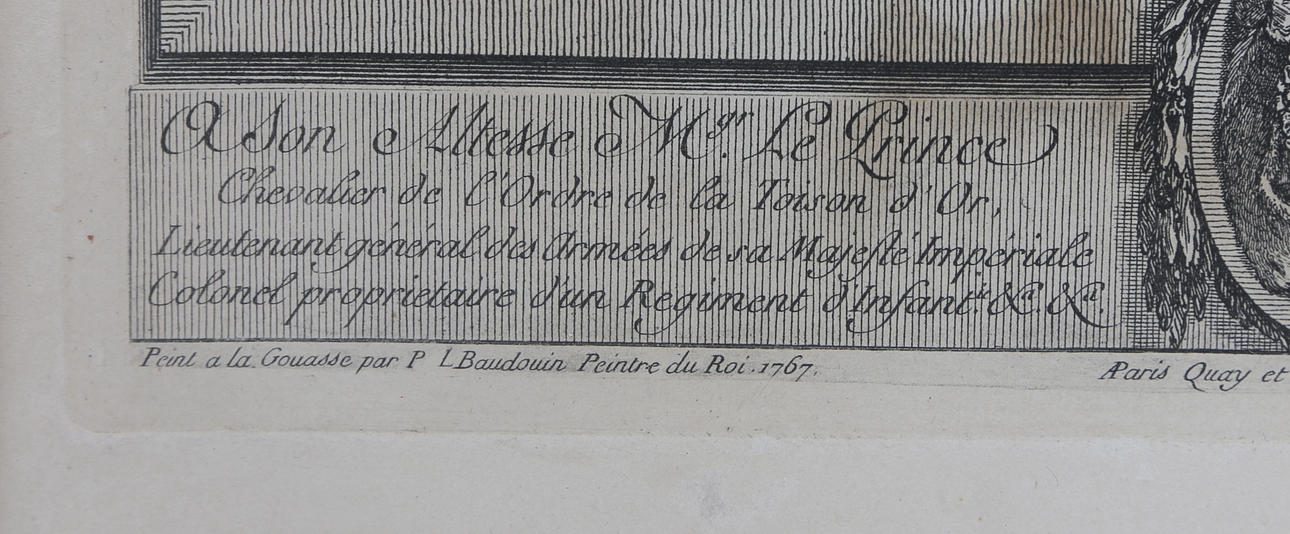 A Son Altesse M.gr Le Prince
Chevalier de l'Ordre de la Toison d'Or,
Lieutenant général des Armées de sa Majesté Impériale
Colonel proprietaire d'un Regiment d'Infant.ie &c.a &c.a
Peint a la Gouasse par P L Baudouin Peintre du Roi. 1767.
A Paris Quay et